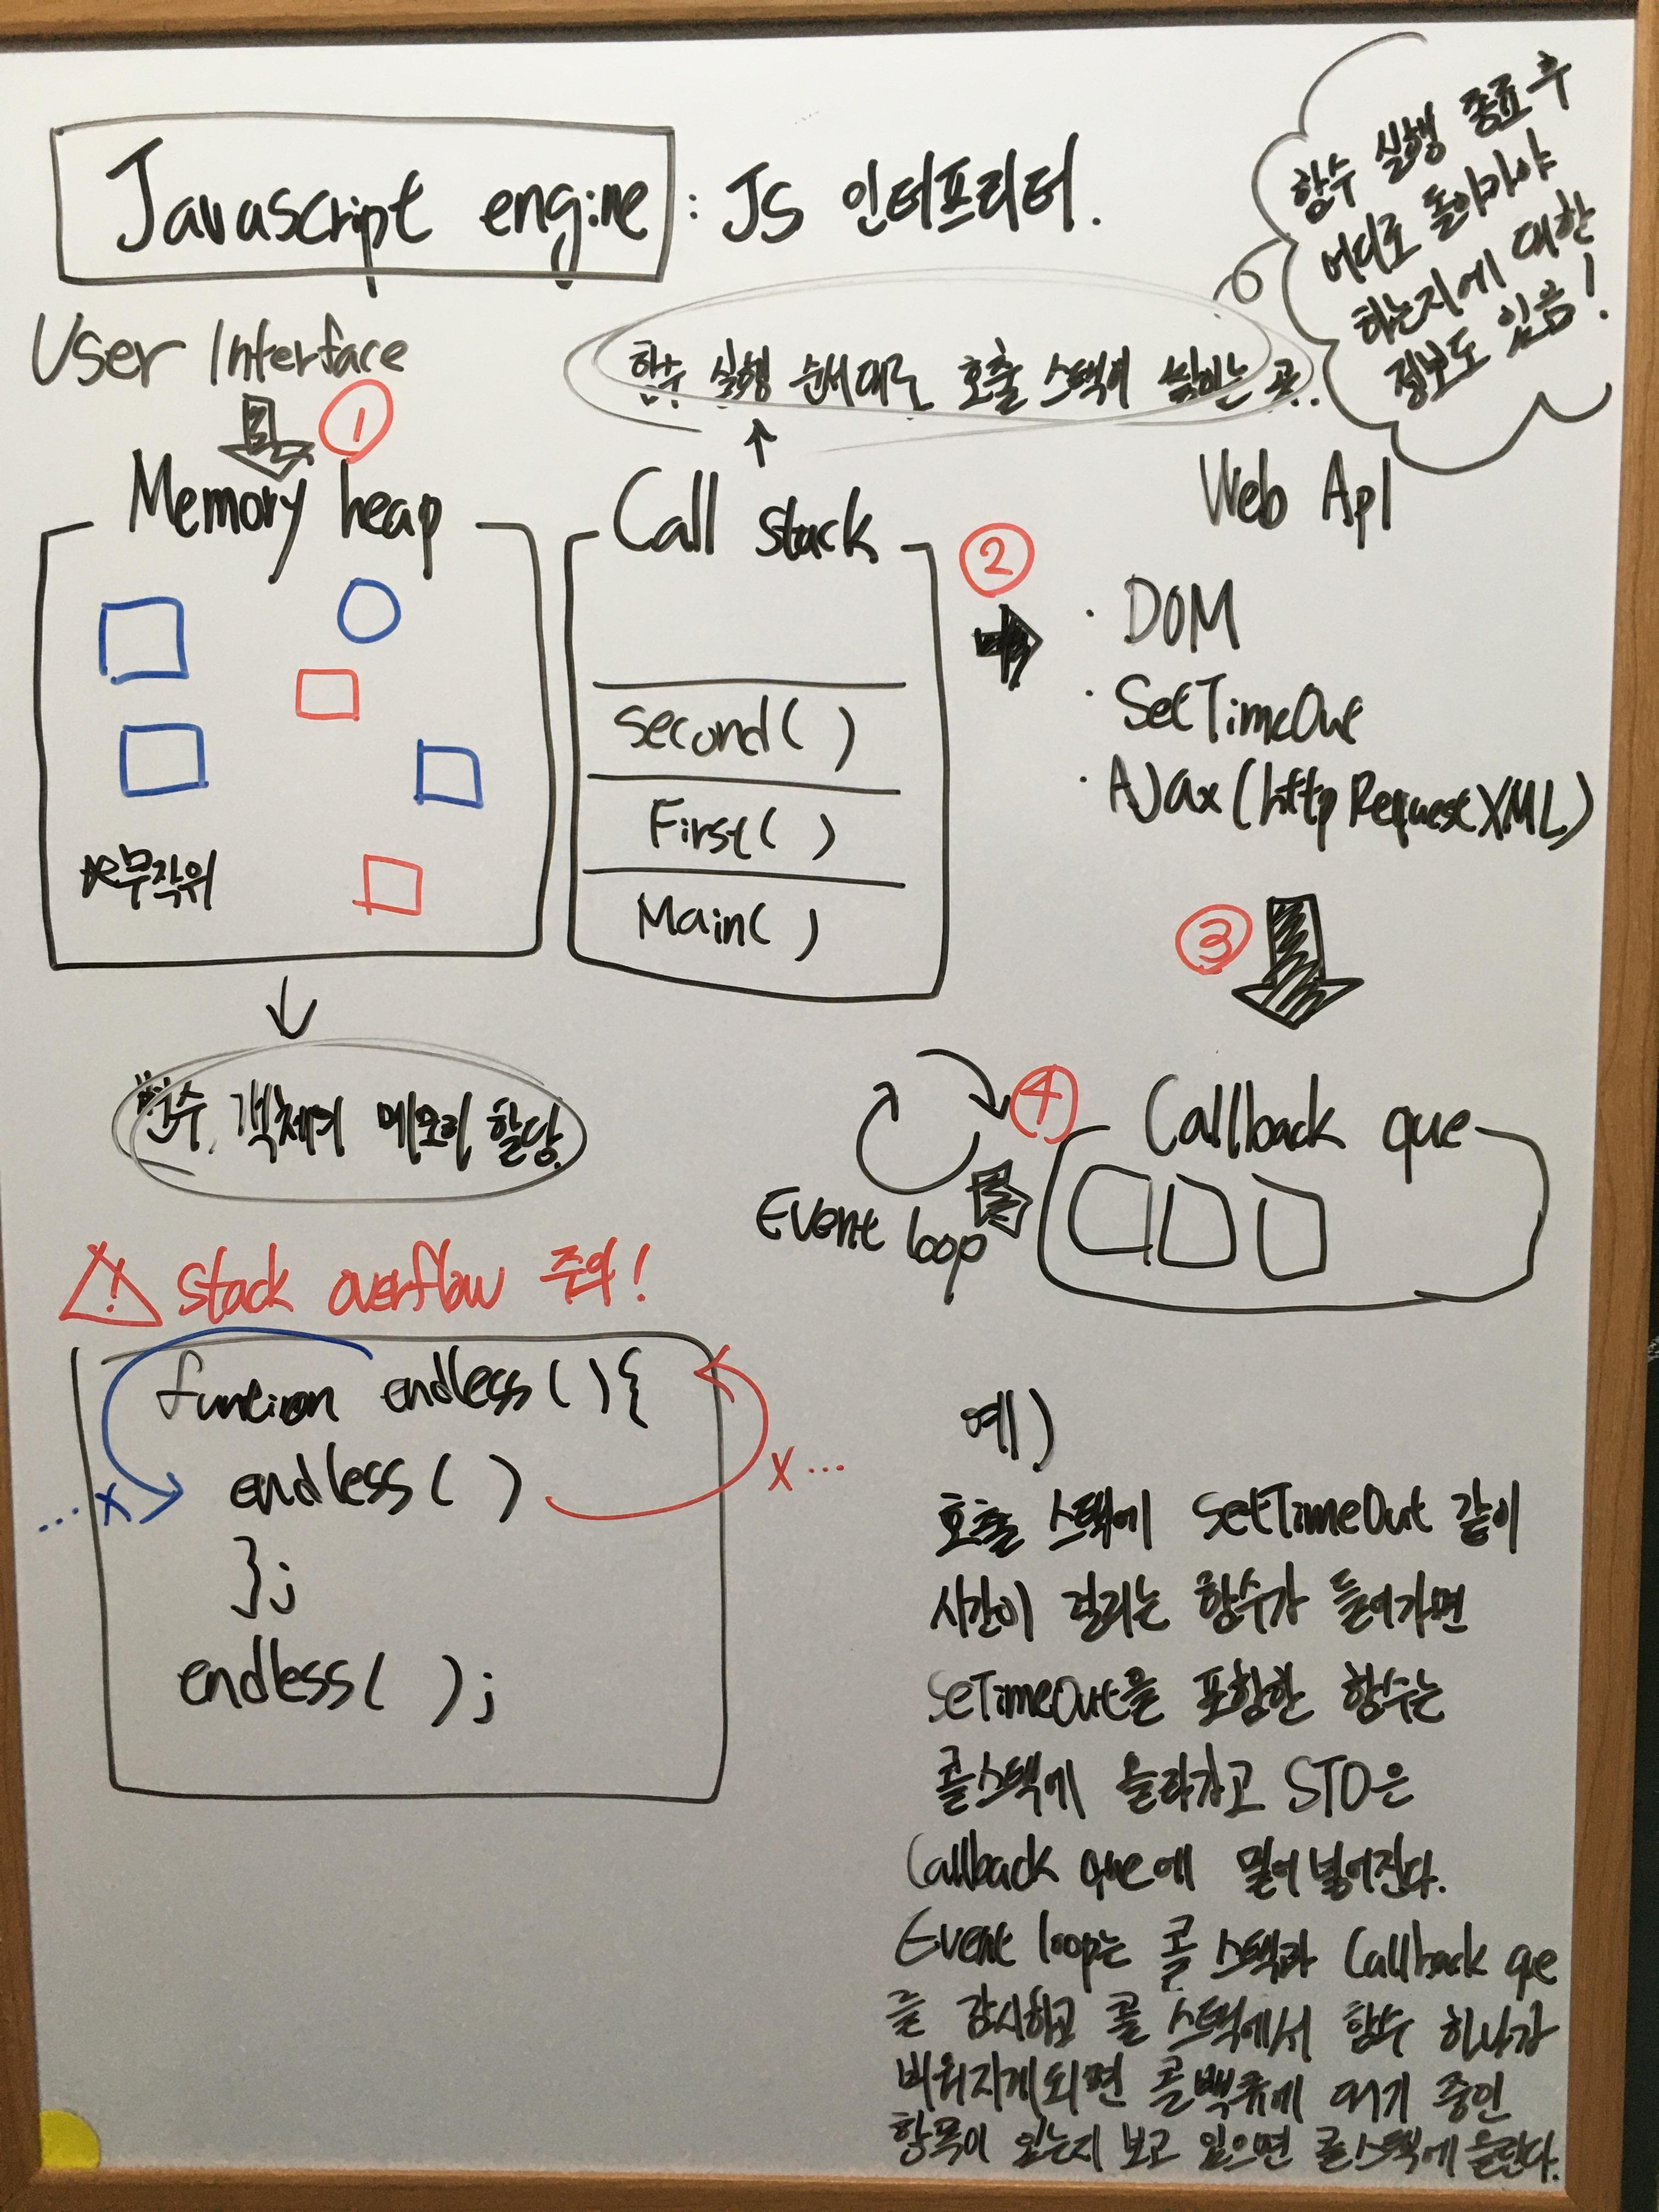 Javascript engine : JS 인터프리터.
함수 실행 종료 후
어디로 돌아가야
하는지에 대한
정보도 있음!
User Interface
함수 실행 순서대로 호출 스택에 쌓이는 곳..
①
Memory heap
Call stack
②
Web ApI
· DOM
· SetTimeOut
· AJax (http Request XML)
second( )
First( )
Main( )
무작위
③
변수, 객체의 메모리 할당
④
Callback que
Event loop
⚠ Stack overflow 주의!
function endless ( ) {
endless ( )
};
endless( );
x...
...x
예)
호출 스택에 SetTimeOut 같이
시간이 걸리는 함수가 들어가면
SeTimeOut을 포함한 함수는
콜스택에 올라가고 STO은
Callback que에 밀어 넣어진다.
Event loop는 콜 스택과 Callback que
를 감시하고 콜 스택에서 함수 하나가
비워지게되면 콜백큐에 대기 중인
항목이 있는지 보고 있으면 콜스택에 올린다.